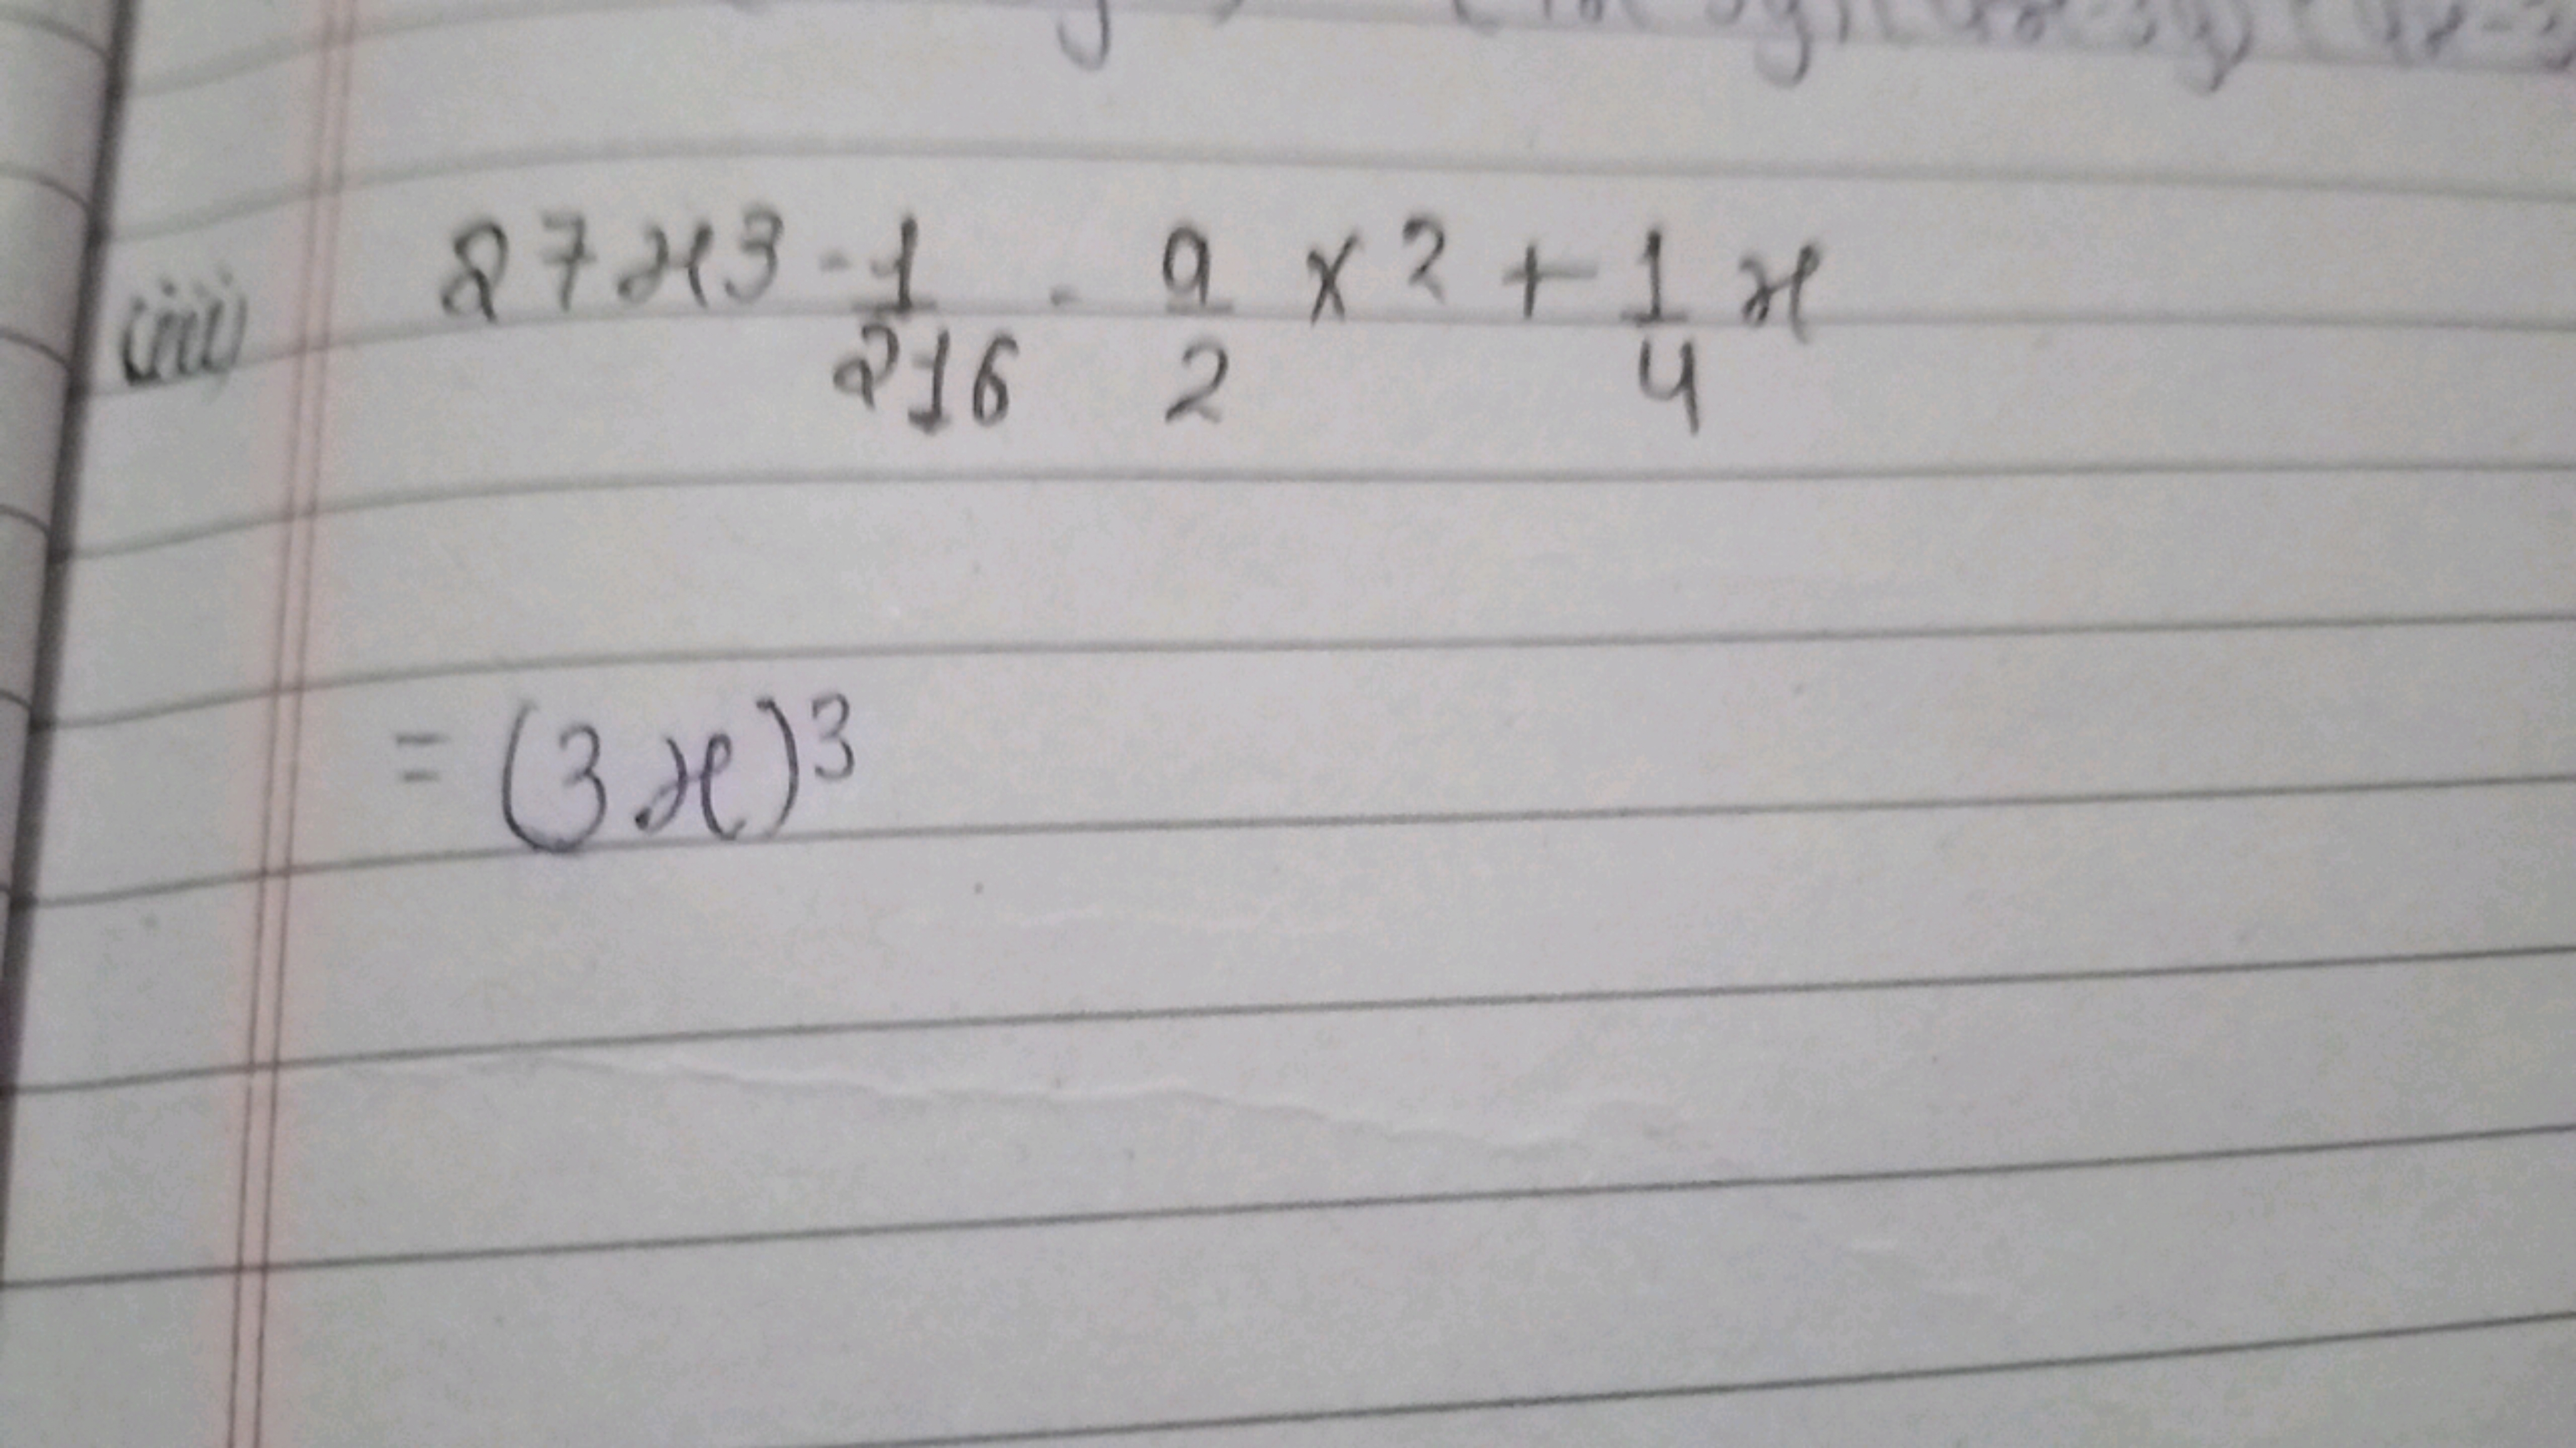 (iii) 27x3 - 1/216 - 9/2 x2 + 1/4 x
= (3x)3